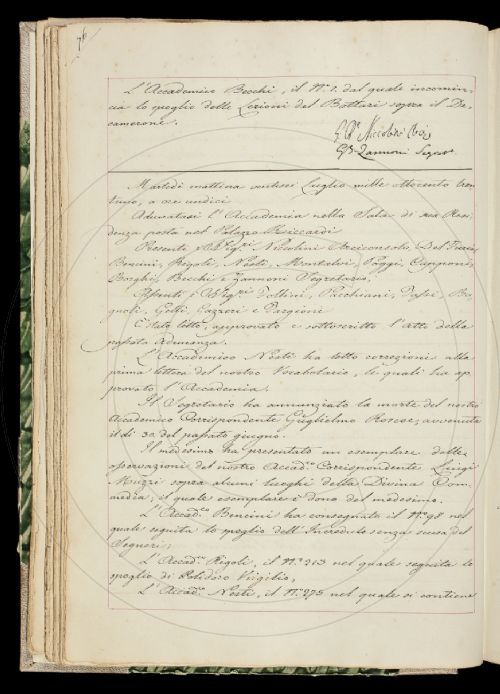 76
L'Accademico Becchi, il N.º 1. dal quale incomin-
cia lo spoglio delle Lezioni del Bottari sopra il De-
camerone.
G. B. Niccolini Arcº
GB. Zannoni Segretº
Martedì mattina ventisei Luglio mille ottocento tren-
tuno, a ore undici
Adunatasi l'Accademia nella Sala di sua Resi-
denza posta nel Palazzo Riccardi
Presenti i SS.ri Niccolini Arciconsolo, Del Furia
Bencini, Rigoli, Nesti, Montalvi, Poggi, Capponi,
Borghi, Becchi e Zannoni Segretario,
Assenti i SS.ri Follini, Pacchiani, Tassi, Ba-
gnoli, Gelli, Gazzeri e Targioni
È stato letto, approvato e sottoscritto l'Atto della
passata Adunanza.
L'Accademico Nesti ha letto correzioni alla
prima lettera del nostro Vocabolario, le quali ha ap-
provato l'Accademia.
Il Segretario ha annunziato la morte del nostro
Accademico Corrispondente Guglielmo Roscoe, avvenuta
il dì 30 del passato giugno.
Il medesimo ha presentato un esemplare delle
osservazioni del nostro Accad.co Corrispondente Luigi
Muzzi sopra alcuni luoghi della Divina Com-
media, il quale esemplare è dono del medesimo.
L'Accad.co Bencini ha consegnato il N.º 98 nel
quale seguita lo spoglio dell'Incredulo senza scusa del
Segneri;
L'Accad.co Rigoli, il N.º 263 nel quale seguita lo
spoglio di Polidoro Virgilio,
L'Accad.co Nesti, il N.º 275 nel quale si contiene